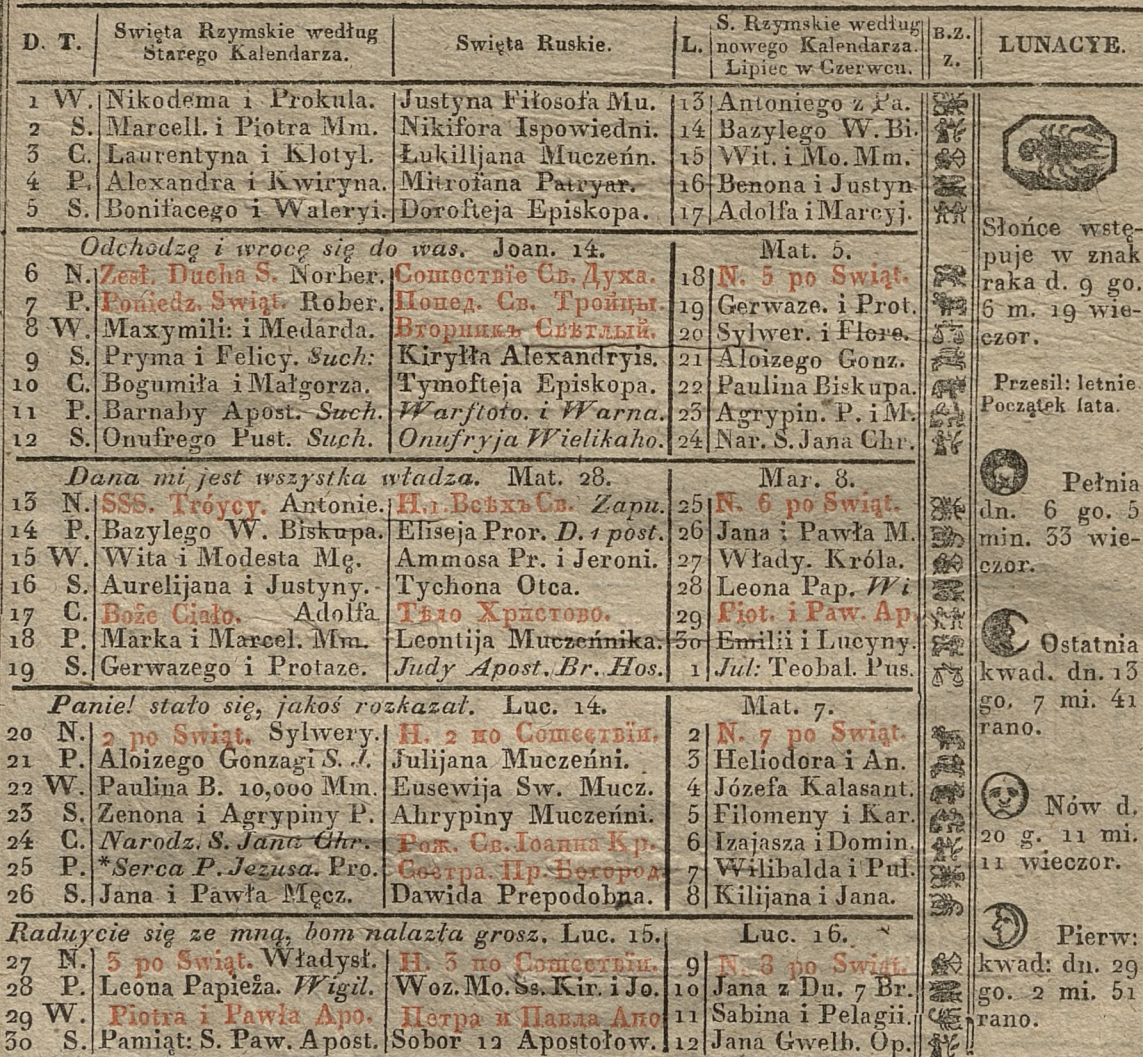 D. T. Swięta Rzymskie według Starego Kalendarza. Swięta Ruskie. L. S. Rzymskie według nowego Kalendarza. Lipiec w Czerwcu. B.Z. Z. LUNACYE.
1 W. Nikodema i Prokula. Justyna Fiłosofa Mu. 13 Antoniego z Pa.
2 S. Marcell. i Piotra Mm. Nikifora Ispowiedni. 14 Bazylego W. Bi.
3 C. Laurentyna i Klotyl. Łukilljana Muczeńn. 15 Wit. i Mo. Mm.
4 P. Alexandra i Kwiryna. Mitrofana Patryar. 16 Benona i Justyn
5 S. Bonifacego i Waleryi. Dorofteja Episkopa. 17 Adolfa i Marcyj.
Odchodzę i wrocę się do was. Joan. 14. Mat. 5.
6 N. Zesł. Ducha S. Norber. Сошествїе Св. Духа. 18 N. 5 po Swiąt.
7 P. Poniedz. Swiąt. Rober. Понед. Св. Тройцы. 19 Gerwaze. i Prot.
8 W. Maxymili: i Medarda. Вторникъ Свѣтлый. 20 Sylwer. i Flore.
9 S. Pryma i Felicy. Such: Kiryłła Alexandryis. 21 Aloizego Gonz.
10 C. Bogumiła i Małgorza. Tymofteja Episkopa. 22 Paulina Biskupa.
11 P. Barnaby Apost. Such. Warftoło. i Warna. 23 Agrypin. P. i M.
12 S. Onufrego Pust. Such. Onufryja Wielikaho. 24 Nar. S. Jana Chr.
Dana mi jest wszystka władza. Mat. 28. Mar. 8.
13 N. SSS. Tróycy. Antonie. Н. 1. Всѣхъ Св. Zapu. 25 N. 6 po Swiąt.
14 P. Bazylego W. Biskupa. Eliseja Pror. D. 1 post. 26 Jana i Pawła M.
15 W. Wita i Modesta Mę. Ammosa Pr. i Jeroni. 27 Włady. Króla.
16 S. Aurelijana i Justyny. Tychona Otca. 28 Leona Pap. Wi
17 C. Boże Ciało. Adolfa Тѣло Христово. 29 Piot. i Paw. Ap.
18 P. Marka i Marcel. Mm. Leontija Muczeńnika. 30 Emilii i Lucyny.
19 S. Gerwazego i Protaze. Judy Apost. Br. Hos. 1 Jul: Teobal. Pus.
Panie! stało się, jakoś rozkazał. Luc. 14. Mat. 7.
20 N. 2 po Swiąt. Sylwery. Н. 2 по Сошествїи. 2 N. 7 po Swiąt.
21 P. Aloizego Gonzagi S. J. Julijana Muczeńni. 3 Heliodora i An.
22 W. Paulina B. 10,000 Mm. Eusewija Sw. Mucz. 4 Józefa Kalasant.
23 S. Zenona i Agrypiny P. Ahrypiny Muczeńni. 5 Filomeny i Kar.
24 C. Narodz. S. Jana Chr. Рож. Св. Іоанна Кр. 6 Izajasza i Domin.
25 P. *Serca P. Jezusa. Pro. Состра. Пр. Богород 7 Wilibalda i Pul.
26 S. Jana i Pawła Męcz. Dawida Prepodobna. 8 Kilijana i Jana.
Raduycie się ze mną, bom nalazła grosz. Luc. 15. Luc. 16.
27 N. 3 po Swiąt. Władysł. Н. 3 по Сошествїи. 9 N. 8 po Swiąt.
28 P. Leona Papieża. Wigil. Woz. Mo. Ss. Kir. i Jo. 10 Jana z Du. 7 Br.
29 W. Piotra i Pawła Apo. Петра и Павла Апо 11 Sabina i Pelagii.
30 S. Pamiąt: S. Paw. Apost. Sobor 12 Apostołow. 12 Jana Gwelb. Op.
Słońce wstę-
puje w znak
raka d. 9 go.
6 m. 19 wie-
czor.
Przesil: letnie
Początek lata.
Pełnia
dn. 6 go. 5
min. 33 wie-
czor.
Ostatnia
kwad. dn. 13
go. 7 mi. 41
rano.
Nów d.
20 g. 11 mi.
11 wieczor.
Pierw:
kwad: dn. 29
go. 2 mi. 51
rano.